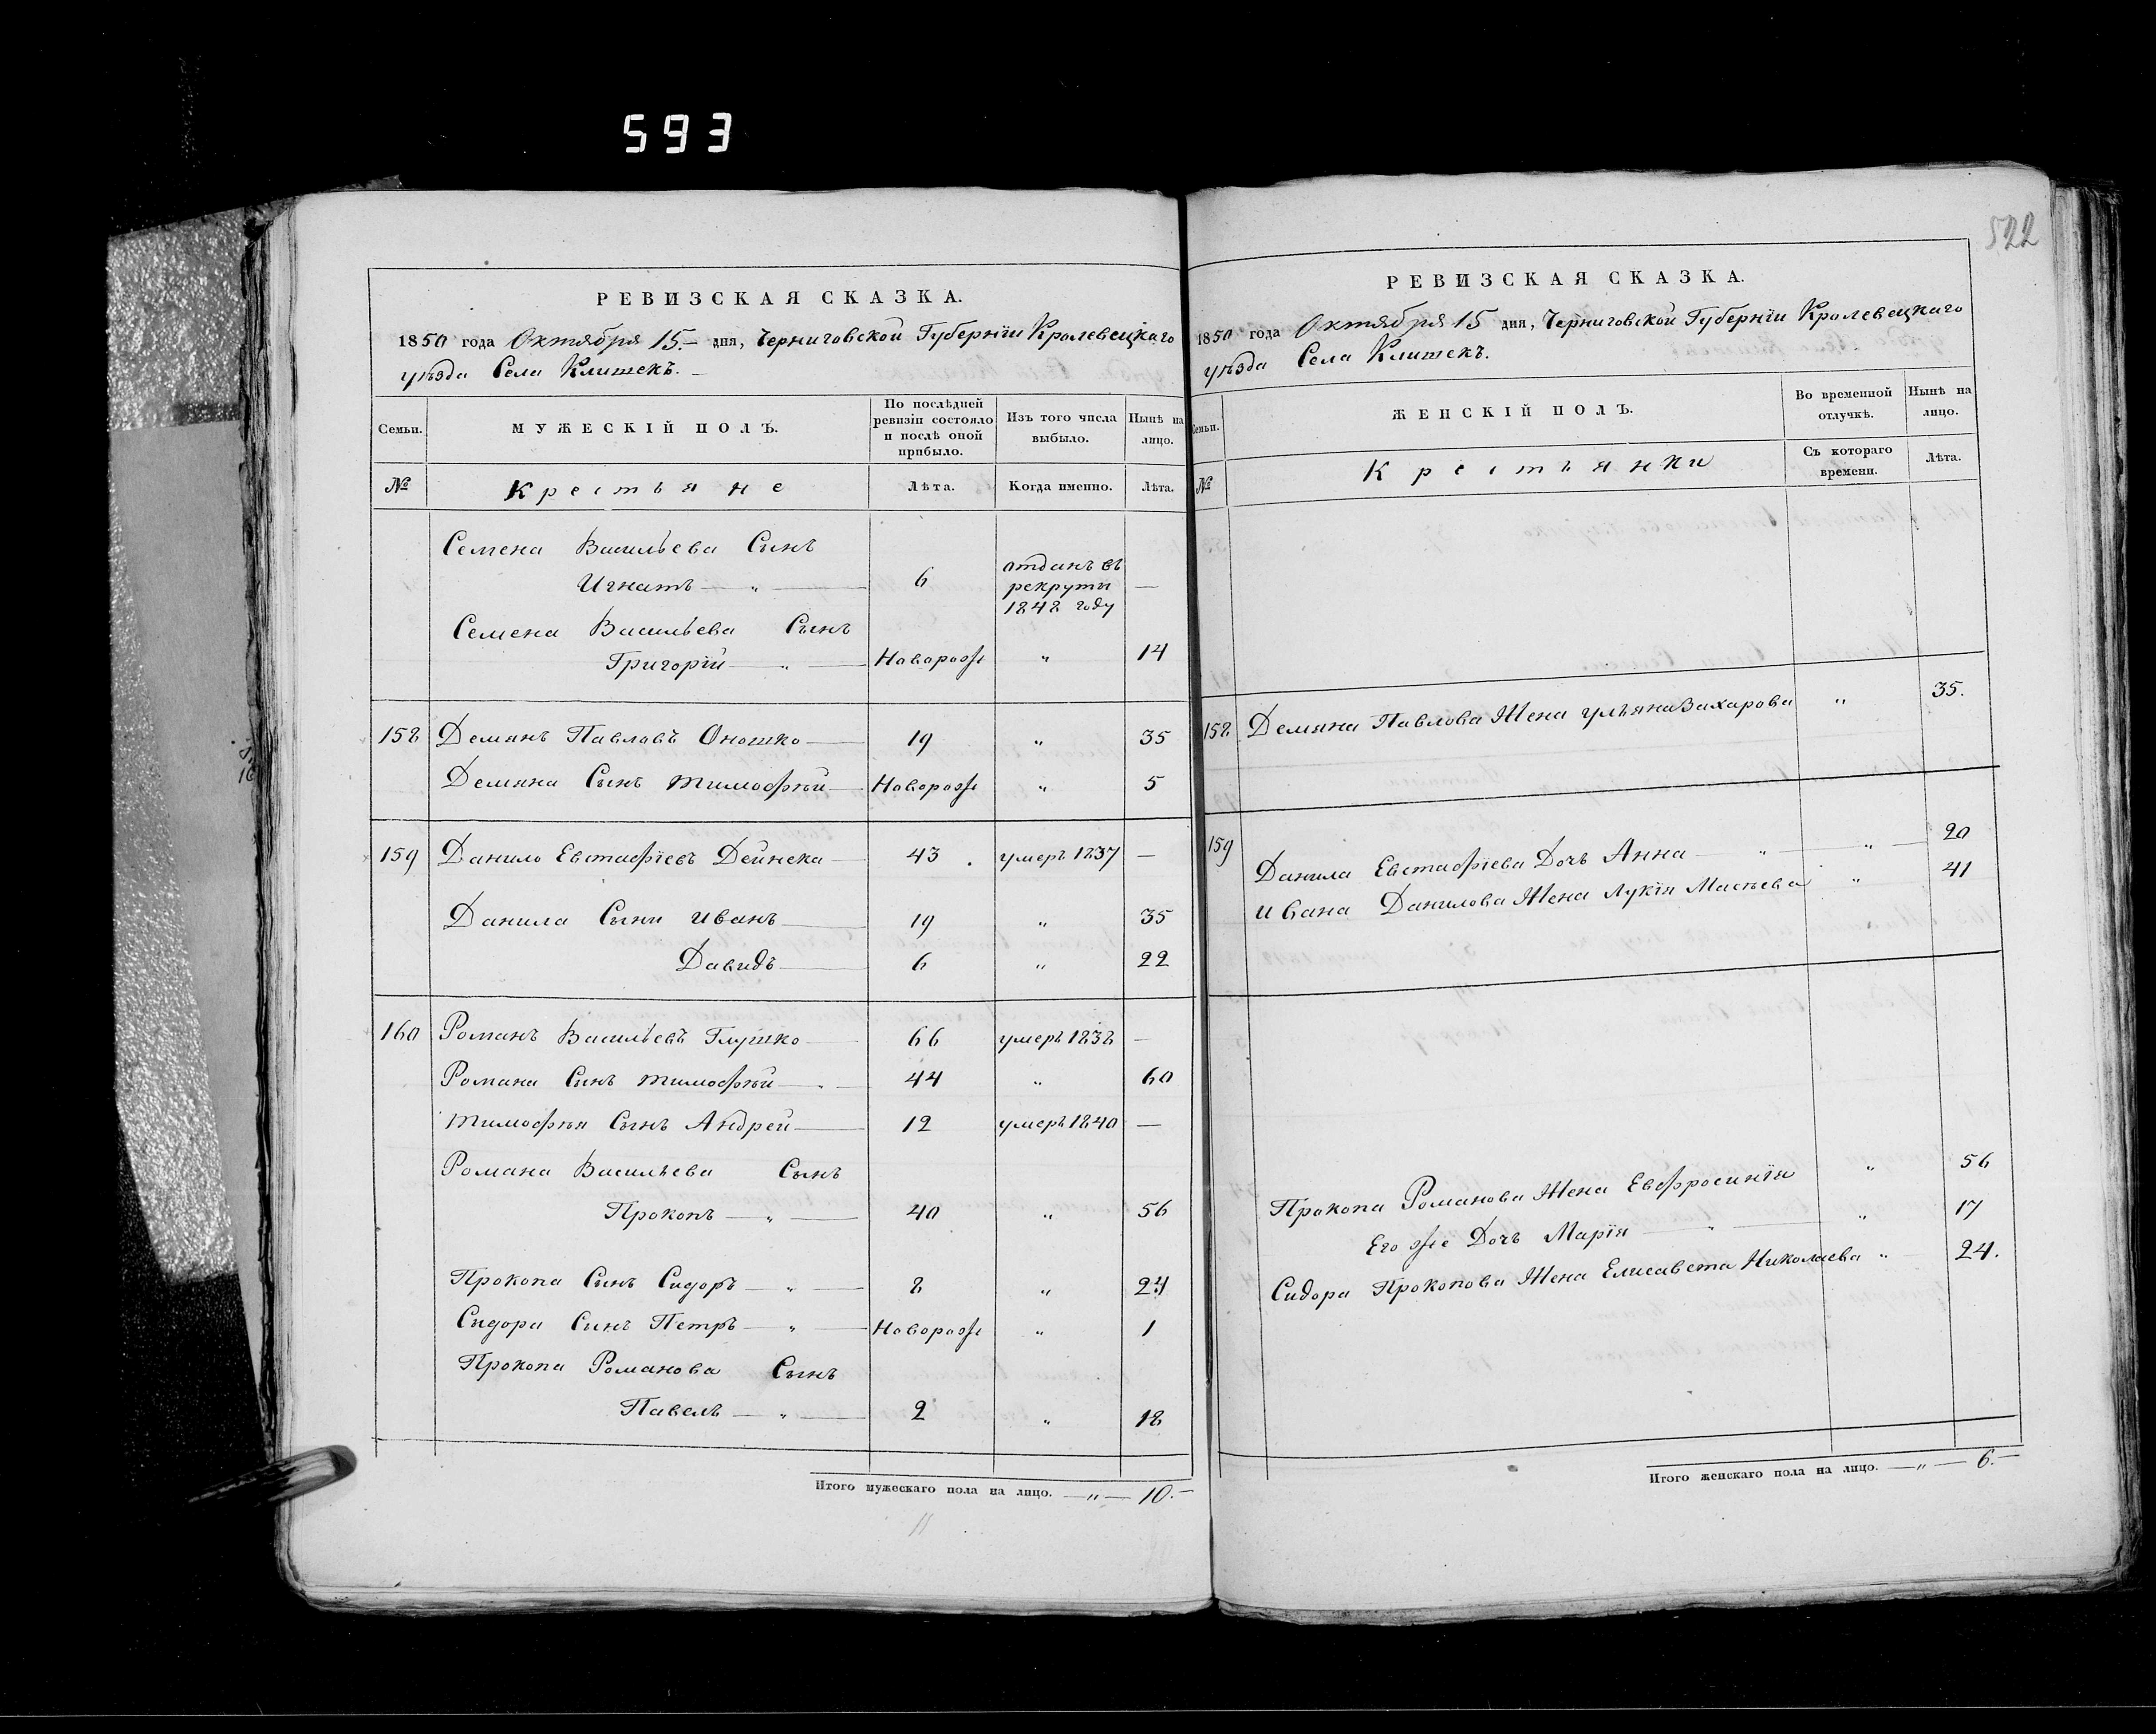 593
522
РЕВИЗСКАЯ СКАЗКА.
1850 года Октября 15.– дня, Черниговской Губерніи Кролевецкаго
уѣзда Села Клишекъ. –
Семьи.
МУЖЕСКІЙ ПОЛЪ.
По послѣдней ревизіи состояло и послѣ оной прибыло.
Изъ того числа выбыло.
Нынѣ на лицо.
№
Крестьяне
Лѣта.
Когда именно.
Лѣта.
Семена Васильева Сынъ
Игнатъ — „ — 6 отданъ въ рекруты 1848 году —
Семена Васильева Сынъ
Григорій — „ — Новорож „ 14
158 Демянъ Павловъ Оношко — 19 „ 35
Демяна Сынъ Тимофѣй — Новорож „ 5
159 Данило Евстафіевъ Дейнека — 43 . умеръ 1837 —
Данила Сыни Иванъ — 19 „ 35
Давидъ — 6 „ 22
160 Романъ Васильевъ Глушко — 66 умеръ 1838 —
Романа Сынъ Тимофѣй — „ — 44 „ 60
Тимофѣя Сынъ Андрей — 12 умеръ 1840 —
Романа Васильева Сынъ
Прокопъ — „ — 40 „ 56
Прокопа Сынъ Сидоръ — „ — 8 „ 24
Сидора Сынъ Петръ — „ — Новорож „ 1
Прокопа Романова Сынъ
Павелъ — „ — 2 „ 18
Итого мужескаго пола на лицо. — „ — 10. –
11
РЕВИЗСКАЯ СКАЗКА.
1850 года Октября 15 дня, Черниговской Губерніи Кролевецкаго
уѣзда Села Клишекъ.
Семьи.
ЖЕНСКІЙ ПОЛЪ.
Во временной отлучкѣ.
Нынѣ на лицо.
№
Крестьянки
Съ котораго времени.
Лѣта.
158 Демяна Павлова Жена Ульяна Захарова „ 35.
159 Данила Евстафіева Дочъ Анна — „ — „ — 20
Ивана Данилова Жена Лукія „ 41
Прокопа Романова Жена Евфросинія „ 56
Его же Дочъ Марія — „ — „ 17
Сидора Прокопова Жена Елисавета Николаева „ 24.
Итого женскаго пола на лицо. — „ — 6. –